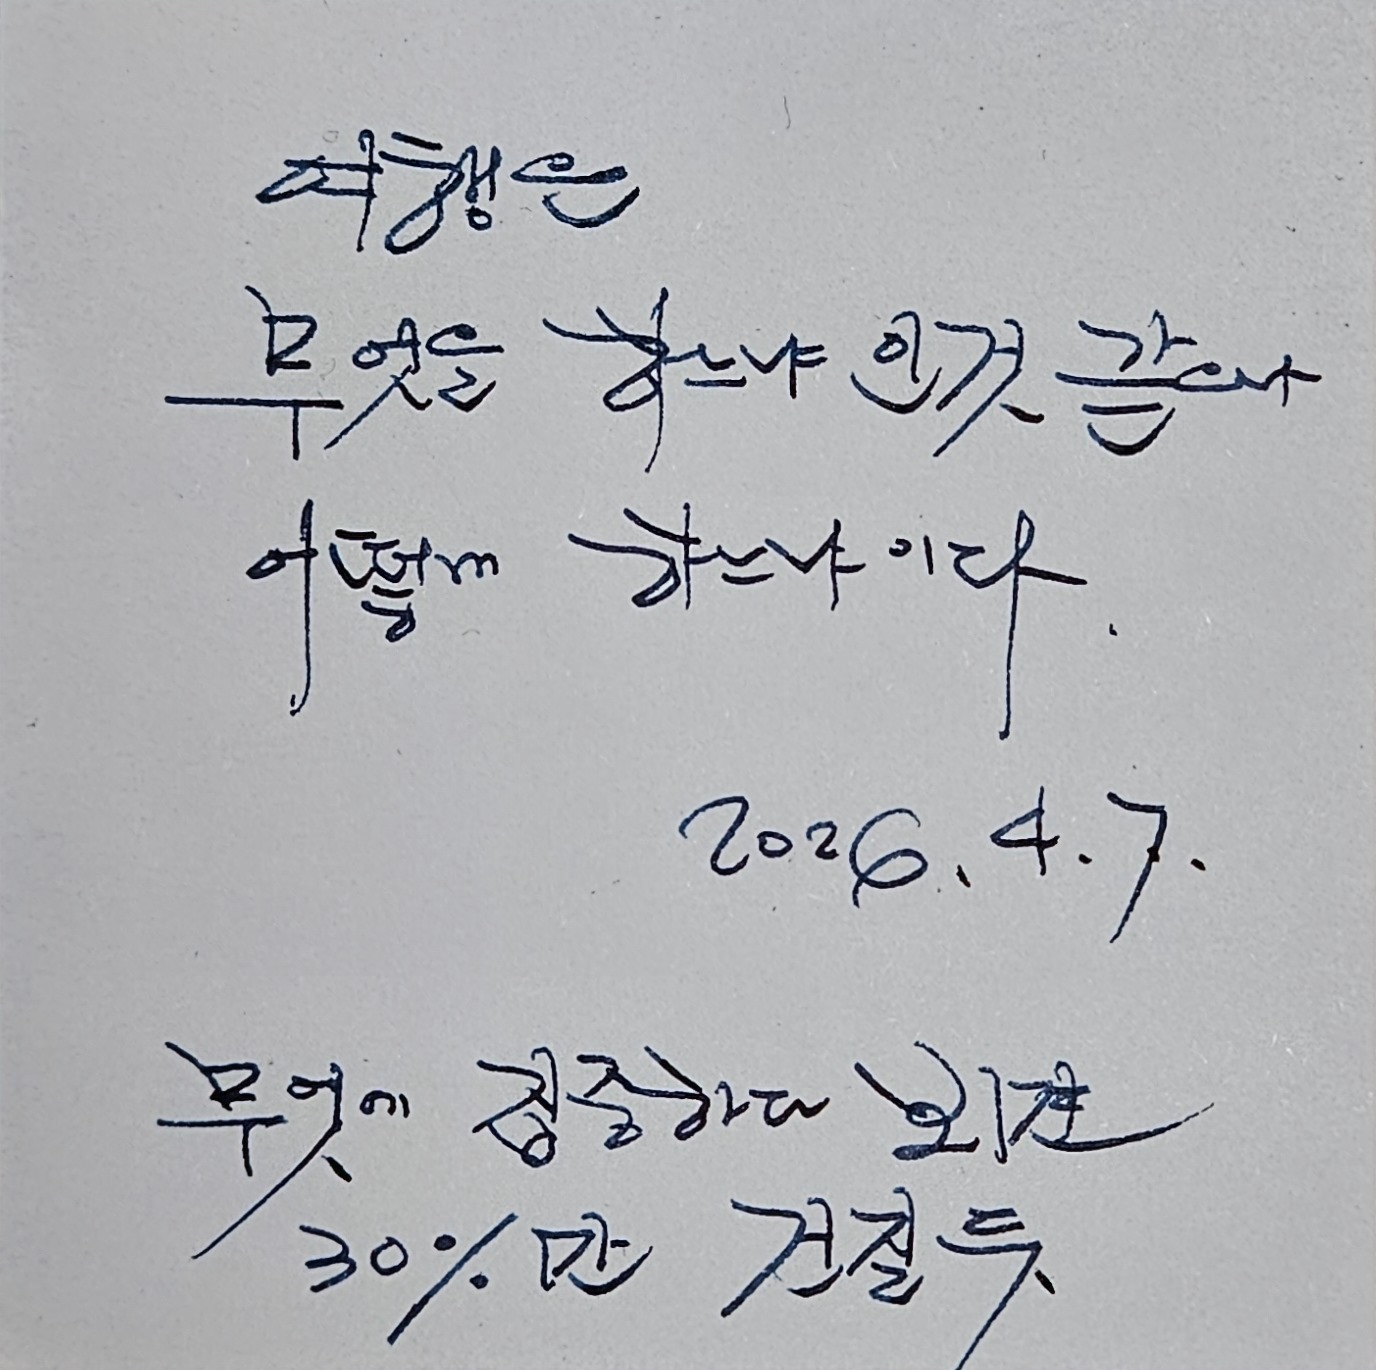 여행은
무엇을 하느냐 인것 같으나
어떻게 하느냐 이다.
2026. 4. 7.
무엇에 집중하다 보면
30%만 건질 듯